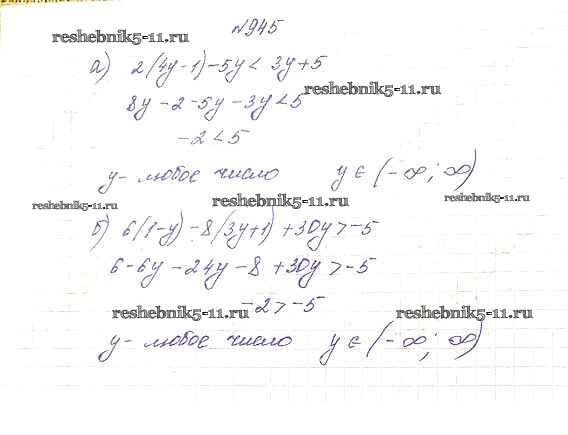 №945
reshebnik5-11.ru
а) 2(4y-1)-5y < 3y+5
reshebnik5-11.ru
8y-2-5y-3y<5
-2<5
y- любое число y∈(-∞;∞)
reshebnik5-11.ru reshebnik5-11.ru reshebnik5-11.ru
б) 6(1-y)-8(3y+1)+30y>-5
6-6y-24y-8+30y>-5
-2>-5
reshebnik5-11.ru reshebnik5-11.ru
y- любое число y∈(-∞;∞)